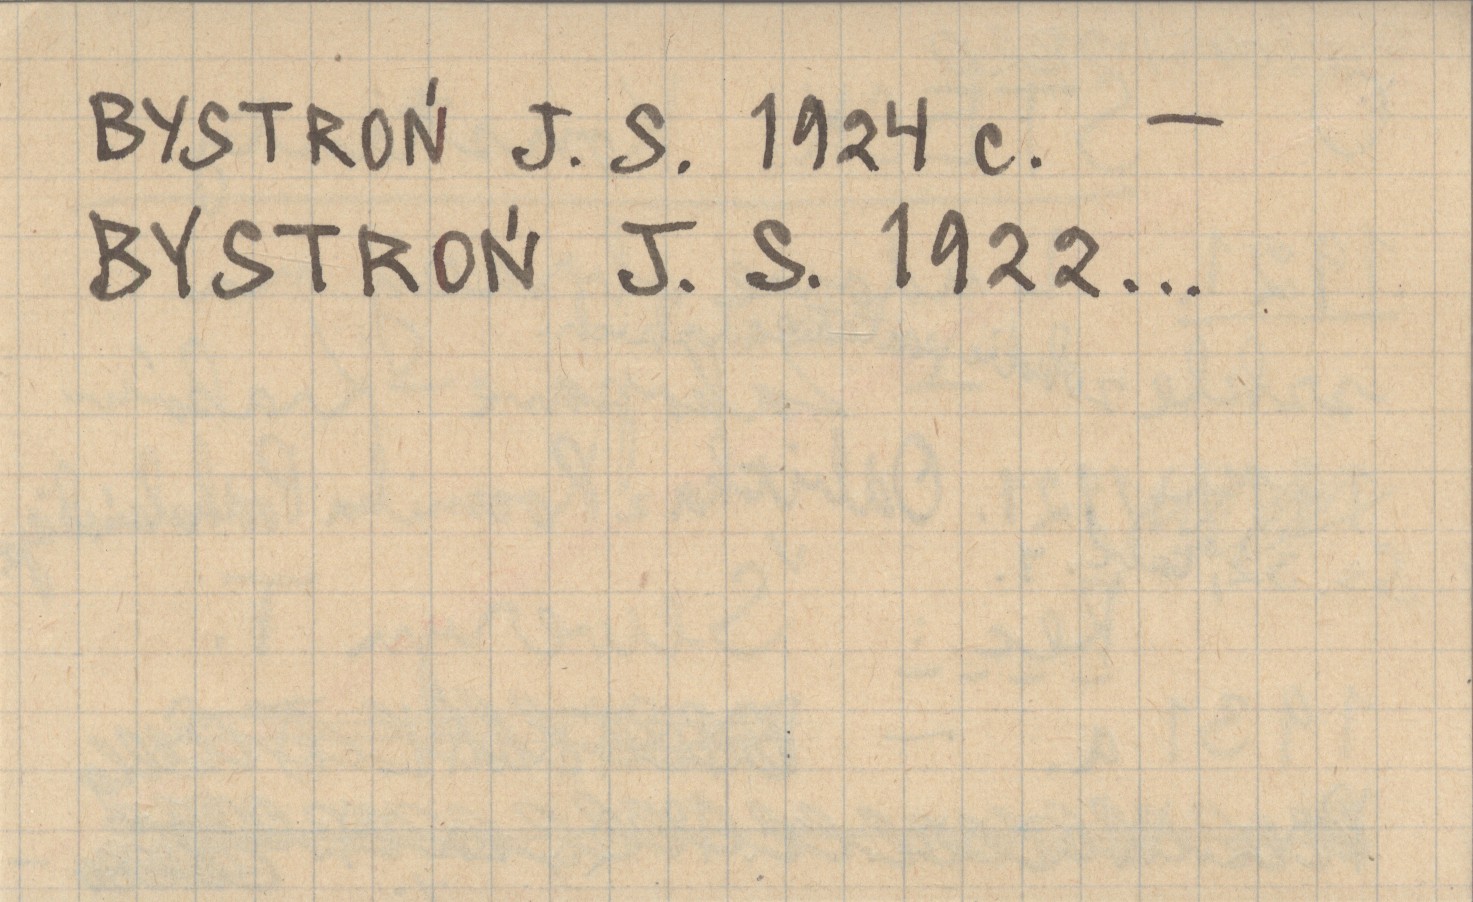 BYSTROŃ J. S. 1924 c. —
BYSTROŃ J. S. 1922...